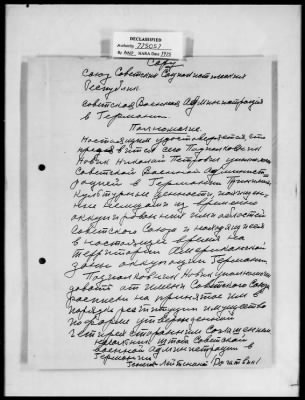 DECLASSIFIED
Authority 775057
By NARA Date
Copy
Союз Советских Социалистических
Республик
Советская Военная Администрация
в Германии
Полномочие
Настоящим удостоверяется, что
предъявитель сего Подполковник
Новик Николай Петрович уполномочен
Советской Военной Администрацией
в Германии
культурные ценности похищенные
немцами из временно
оккупированных ими областей
Советского Союза и находящиеся
в настоящее время на
территории Американской
зоны оккупации Германии.
Подполковник Новик уполномочен
давать от имени Советского Союза
расписки на принятое им в
порядке реституции имущество
по форме утвержденной
четырехсторонним соглашением
Начальник штаба Советской
военной администрации в
Германии
Генерал Лейтенант